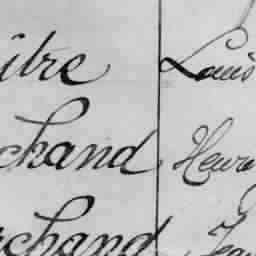 itre Louis
chand Henri
chand Jea